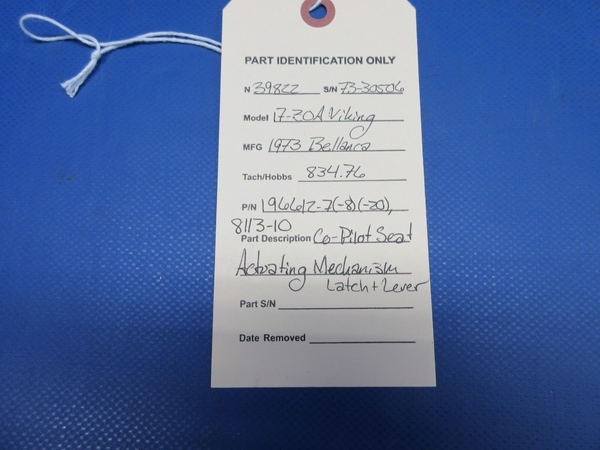 PART IDENTIFICATION ONLY
N 39822 S/N 73-30506
Model 17-30A Viking
MFG 1973 Bellanca
Tach/Hobbs 834.76
P/N 196612-7(-8)(-20),
8113-10
Part Description Co-Pilot Seat
Actuating Mechanism
Latch + Lever
Part S/N
Date Removed